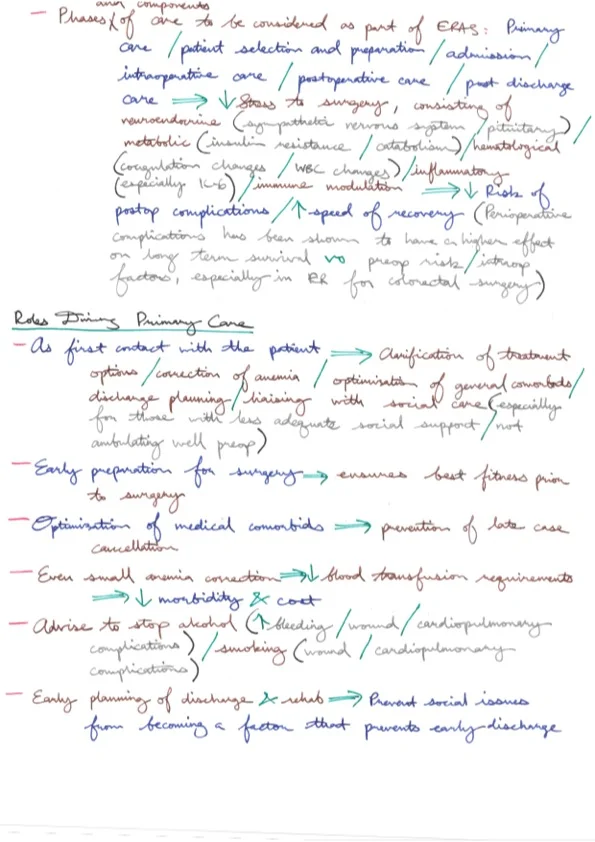 and components
- Phases of care to be considered as part of ERAS: Primary
care / patient selection and preparation / admission /
intraoperative care / postoperative care / post discharge
care ⟹ ↓ Stress to surgery, consisting of
neuroendocrine (sympathetic nervous system / pituitary) /
metabolic (insulin resistance / catabolism) / hematological
(coagulation changes / WBC changes) / inflammatory
(especially IL-6) / immune modulation ⟹ ↓ Risk of
postop complications / ↑ speed of recovery (Perioperative
complications has been shown to have a higher effect
on long term survival vs preop risk / intraop
factors, especially in for colorectal surgery)
Roles During Primary Care
- As first contact with the patient ⟹ Clarification of treatment
options / correction of anemia / optimization of general comorbids /
discharge planning / liaising with social care (especially
for those with less adequate social support / not
ambulating well preop)
- Early preparation for surgery ⟹ ensures best fitness prior
to surgery
- Optimization of medical comorbids ⟹ prevention of late case
cancellation
- Even small anemia correction ⟹ ↓ blood transfusion requirements
⟹ ↓ morbidity & cost
- Advise to stop alcohol (↑ bleeding / wound / cardiopulmonary
complications) / smoking (wound / cardiopulmonary
complications)
- Early planning of discharge & rehab ⟹ Prevent social issues
from becoming a factor that prevents early discharge